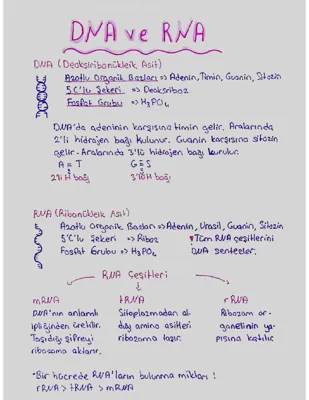 DNA ve RNA
DNA (Deoksiribonükleik Asit)
Azotlu Organik Bazları => Adenin, Timin, Guanin, Sitozin
5C'lu Şekeri => Deoksiriboz
Fosfat Grubu => H3PO4
DNA'da adeninin karşısına timin gelir. Aralarında
2'li hidrojen bağı bulunur. Guanin karşısına sitozin
gelir. Aralarında 3'lü hidrojen bağı kurulur.
A = T G ≡ S
2'li H bağı 3'lü H bağı
RNA (Ribonükleik Asit)
Azotlu Organik Bazları => Adenin, Urasil, Guanin, Sitozin
5'C'lu Şekeri => Riboz
Fosfat Grubu => H3PO4
Tüm RNA çeşitlerini
DNA sentezler.
RNA Çeşitleri
mRNA
DNA'nın anlamlı
ipliğinden üretilir.
Taşıdığı şifreyi
ribozoma aktarır.
tRNA
Sitoplazmadan al
dığı amino asitleri
ribozoma taşır.
rRNA
Ribozom or-
ganelinin ya-
pısına katılır.
Bir hücrede RNA'ların bulunma miktarı:
rRNA > tRNA > mRNA